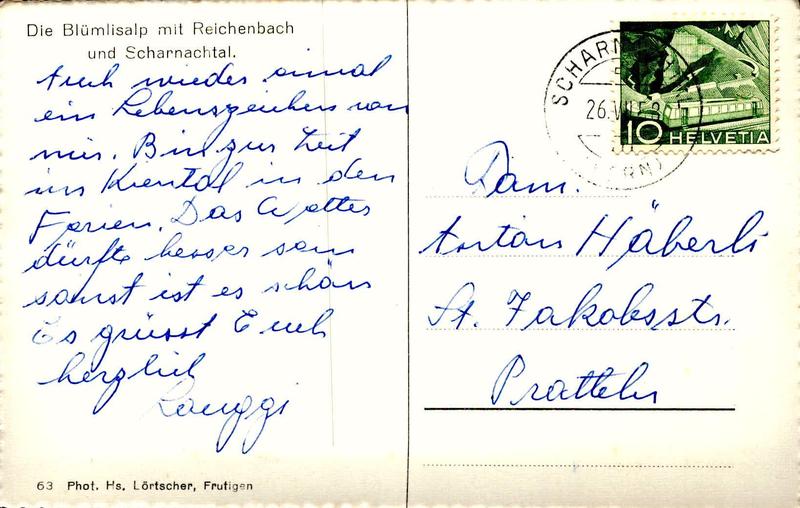 Die Blümlisalp mit Reichenbach
und Scharnachtal.
Auch wieder einmal
ein Lebenszeichen von
mir. Bin zur Zeit
im Kiental in den
Ferien. Das Wetter
dürfte besser sein
sonst ist es schön
Es grüsst Euch
herzlich
63 Phot. Hs. Lörtscher, Frutigen
10 HELVETIA
Fam.
Anton Häberli
St. Jakobsstr.
Pratteln